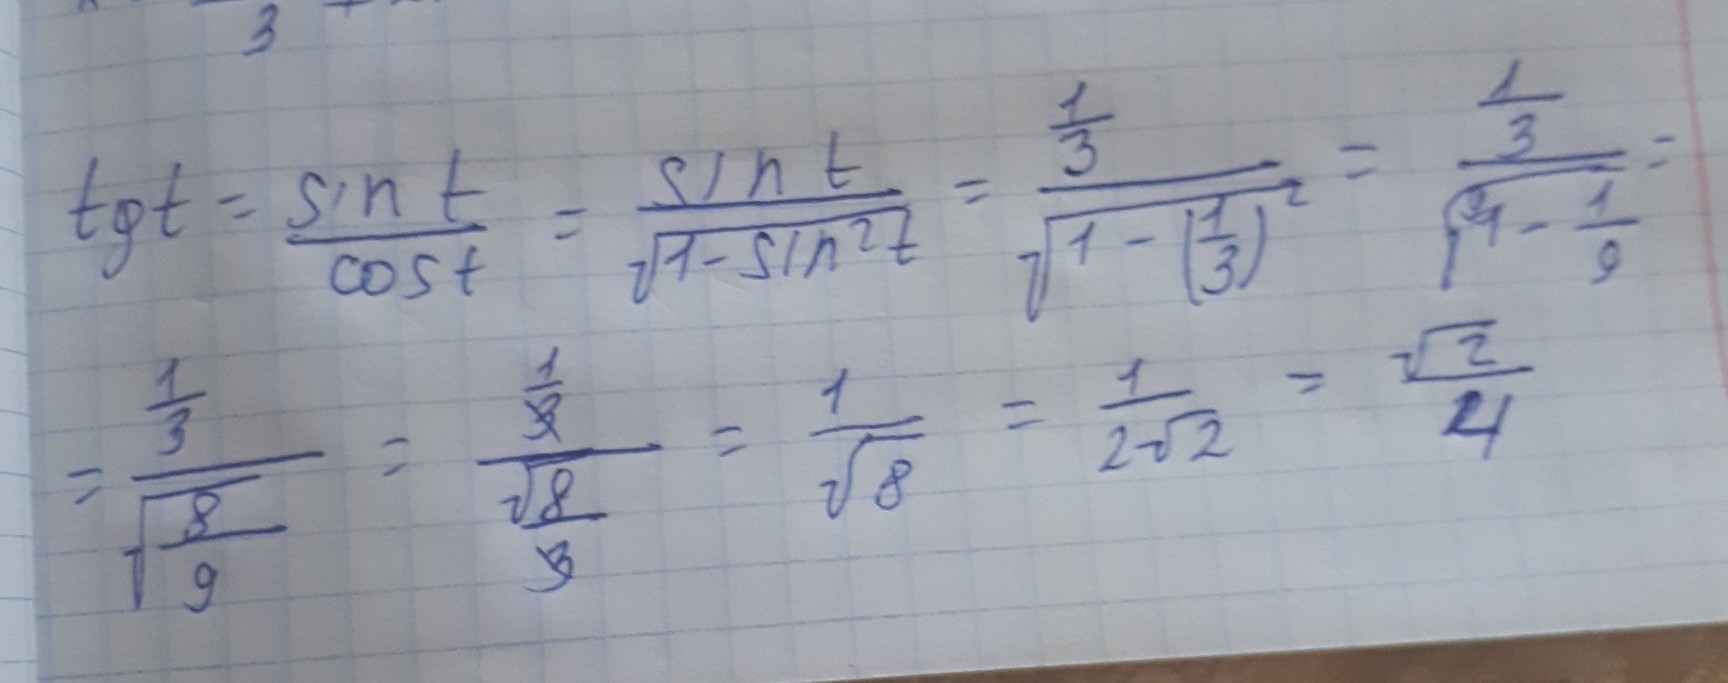 3
tgt = sin t / cos t = sin t / √(1 - sin²t) = (1/3) / √(1 - (1/3)²) = (1/3) / √(1 - 1/9) =
= (1/3) / √(8/9) = (1/3) / (√8/3) = 1/√8 = 1/(2√2) = √2/4